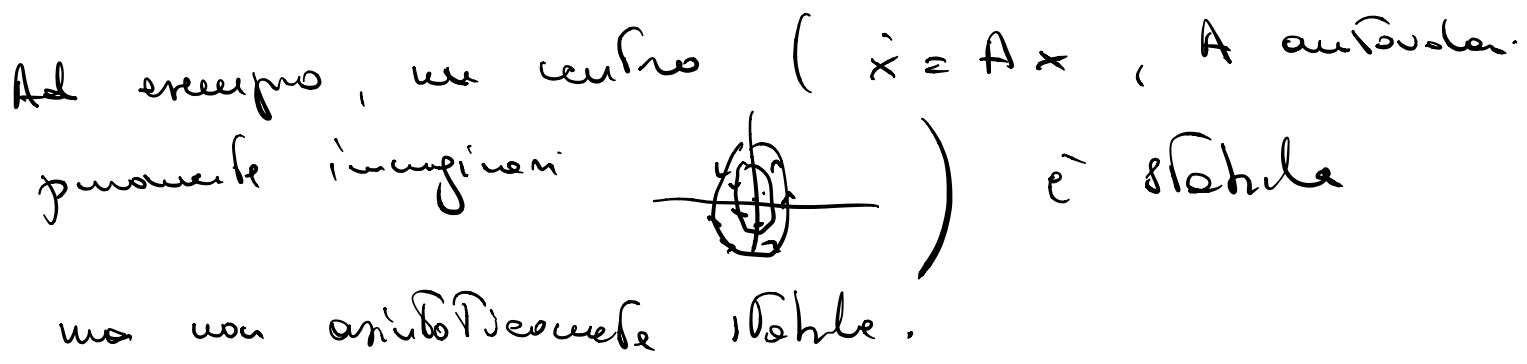 Ad esempio, un centro ( ẋ = A x , A autovalori
puramente immaginari ) è stabile
ma non asintoticamente stabile.